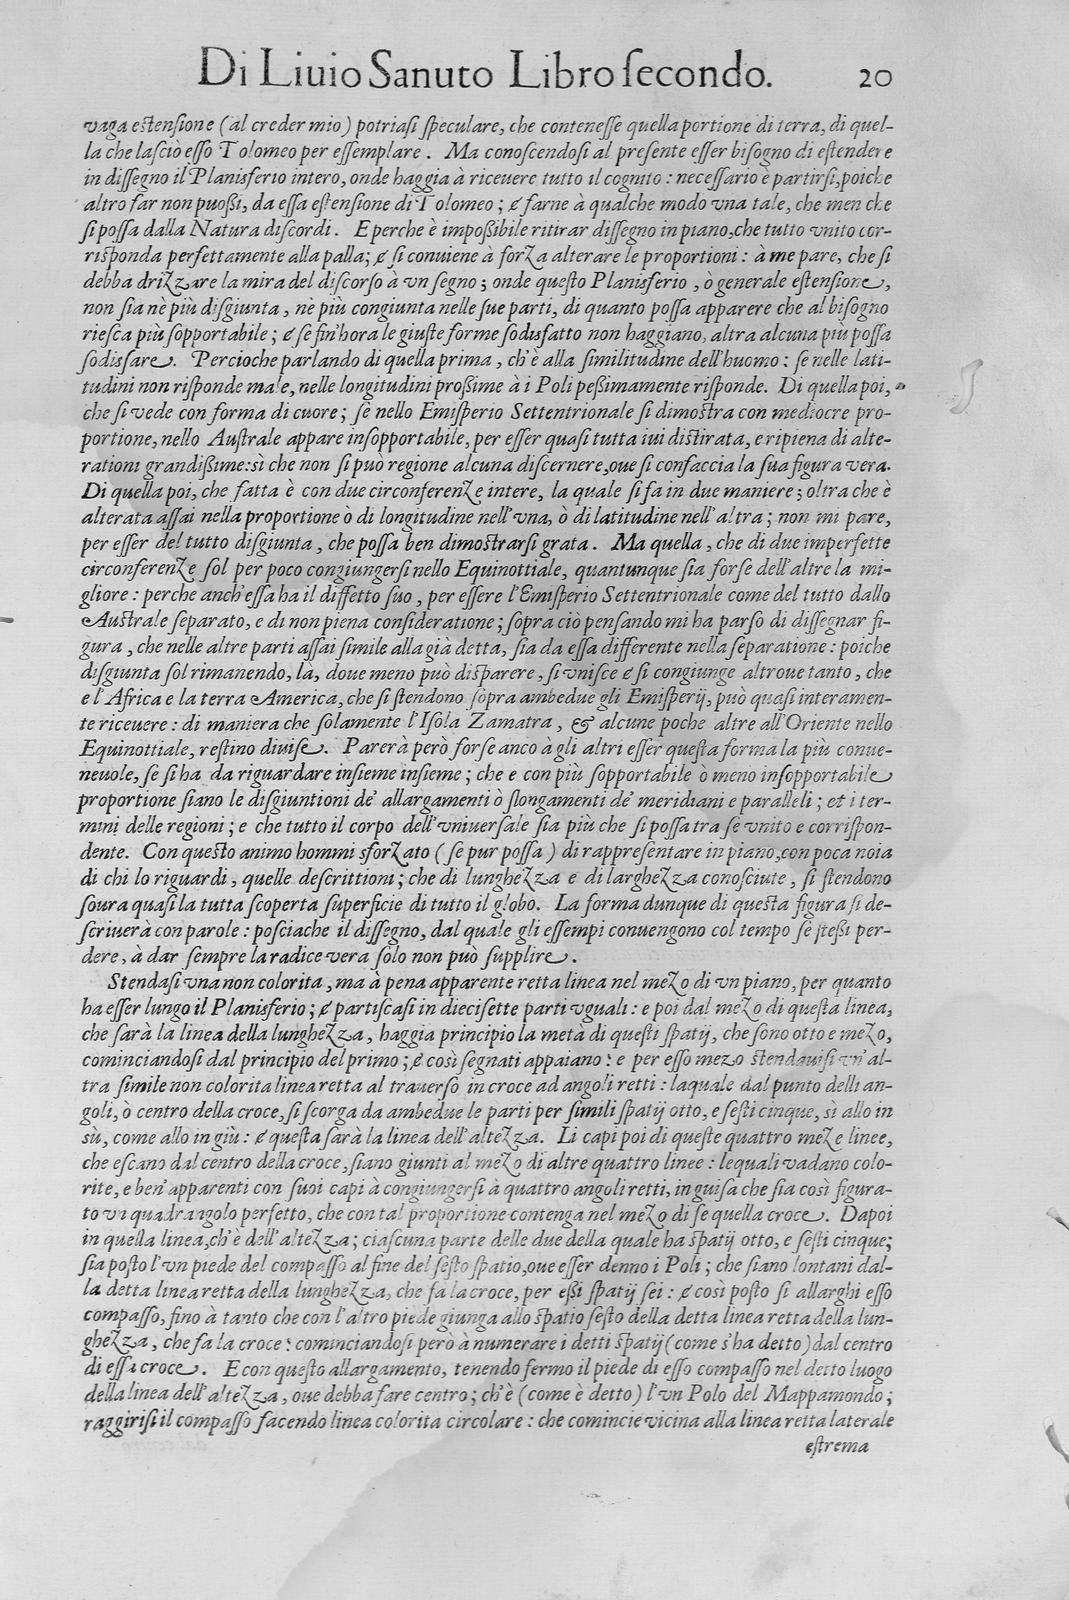 Di Liuio Sanuto Libro secondo. 20
vaga estensione (al creder mio) potriasi speculare, che contenesse quella portione di terra, di quel-
la che lasciò esso Tolomeo per essemplare. Ma conoscendosi al presente esser bisogno di estendere
in dissegno il Planisferio intero, onde haggia à riceuere tutto il cognito: necessario è partirsi, poiche
altro far non puossi, da essa estensione di Tolomeo; & farne à qualche modo vna tale, che men che
si possa dalla Natura discordi. E perche è impossibile ritirar dissegno in piano, che tutto vnito cor-
risponda perfettamente alla palla; & si conuiene à forza alterare le proportioni: à me pare, che si
debba drizzare la mira del discorso à vn segno; onde questo Planisferio, ò generale estensione,
non sia nè più disgiunta, nè più congiunta nelle sue parti, di quanto possa apparere che al bisogno
riesca più sopportabile; & se fin'hora le giuste forme sodisfatto non haggiano, altra alcuna più possa
sodisfare. Percioche parlando di quella prima, ch'è alla similitudine dell'huomo: se nelle lati-
tudini non risponde male, nelle longitudini prossime à i Poli pessimamente risponde. Di quella poi,
che si vede con forma di cuore; se nello Emisperio Settentrionale si dimostra con mediocre pro-
portione, nello Australe appare insopportabile, per esser quasi tutta iui distirata, e ripiena di alte-
rationi grandissime: sì che non si può regione alcuna discernere, oue si confaccia la sua figura vera.
Di quella poi, che fatta è con due circonferenze intere, la quale si fa in due maniere; oltra che è
alterata assai nella proportione ò di longitudine nell'vna, ò di latitudine nell'altra; non mi pare,
per esser del tutto disgiunta, che possa ben dimostrarsi grata. Ma quella, che di due imperfette
circonferenze sol per poco congiungersi nello Equinottiale, quantunque sia forse dell'altre la mi-
gliore: perche anch'essa ha il diffetto suo, per essere l'Emisperio Settentrionale come del tutto dallo
Australe separato, e di non piena consideratione; sopra ciò pensando mi ha parso di dissegnar fi-
gura, che nelle altre parti assai simile alla già detta, sia da essa differente nella separatione: poiche
disgiunta sol rimanendo, là, doue meno può disparere, si vnisce & si congiunge altroue tanto, che
e l'Africa e la terra America, che si stendono sopra ambedue gli Emisperij, può quasi interamen-
te riceuere: di maniera che solamente l'Isola Zamatra, & alcune poche altre all'Oriente nello
Equinottiale, restino diuise. Parerà però forse anco à gli altri esser questa forma la più conue-
neuole, se si ha da riguardare insieme insieme; che e con più sopportabile ò meno insopportabile
proportione siano le disgiuntioni de' allargamenti ò slongamenti de' meridiani e paralleli; et i ter-
mini delle regioni; e che tutto il corpo dell'vniuersale sia più che si possa tra se vnito e corrispon-
dente. Con questo animo hommi sforzato (se pur possa) di rappresentare in piano, con poca noia
di chi lo riguardi, quelle descrittioni; che di lunghezza e di larghezza conosciute, si stendono
soura quasi la tutta scoperta superficie di tutto il globo. La forma dunque di questa figura si de-
scriuerà con parole: posciache il dissegno, dal quale gli essempi conuengono col tempo se stessi per-
dere, à dar sempre la radice vera solo non può supplire.
Stendasi vna non colorita, ma à pena apparente retta linea nel mezo di vn piano, per quanto
ha esser lungo il Planisferio; & partiscasi in diecisette parti vguali: e poi dal mezo di questa linea,
che sarà la linea della lunghezza, haggia principio la metà di questi spatij, che sono otto e mezo,
cominciandosi dal principio del primo; & così segnati appaiano: e per esso mezo stendauisi vn'al-
tra simile non colorita linea retta al trauerso in croce ad angoli retti: laquale dal punto delli an-
goli, ò centro della croce, si scorga da ambedue le parti per simili spatij otto, e sesti cinque, sì allo in
sù, come allo in giù: & questa sarà la linea dell'altezza. Li capi poi di queste quattro meze linee,
che escano dal centro della croce, siano giunti al mezo di altre quattro linee: lequali vadano colo-
rite, e ben'apparenti con suoi capi à congiungersi à quattro angoli retti, in guisa che sia così figura-
to vn quadrangolo perfetto, che con tal proportione contenga nel mezo di se quella croce. Dapoi
in quella linea, ch'è dell'altezza; ciascuna parte delle due della quale ha spatij otto, e sesti cinque;
sia posto l'vn piede del compasso al fine del sesto spatio, oue esser denno i Poli; che siano lontani dal-
la detta linea retta della lunghezza, che fa la croce, per essi spatij sei: & così posto si allarghi esso
compasso, fino à tanto che con l'altro piede giunga allo spatio sesto della detta linea retta della lun-
ghezza, che fa la croce: cominciandosi però à numerare i detti spatij (come s'ha detto) dal centro
di essa croce. E con questo allargamento, tenendo fermo il piede di esso compasso nel detto luogo
della linea dell'altezza, oue debba fare centro; ch'è (come è detto) l'vn Polo del Mappamondo;
raggirisi il compasso facendo linea colorita circolare: che comincie vicina alla linea retta laterale
estrema